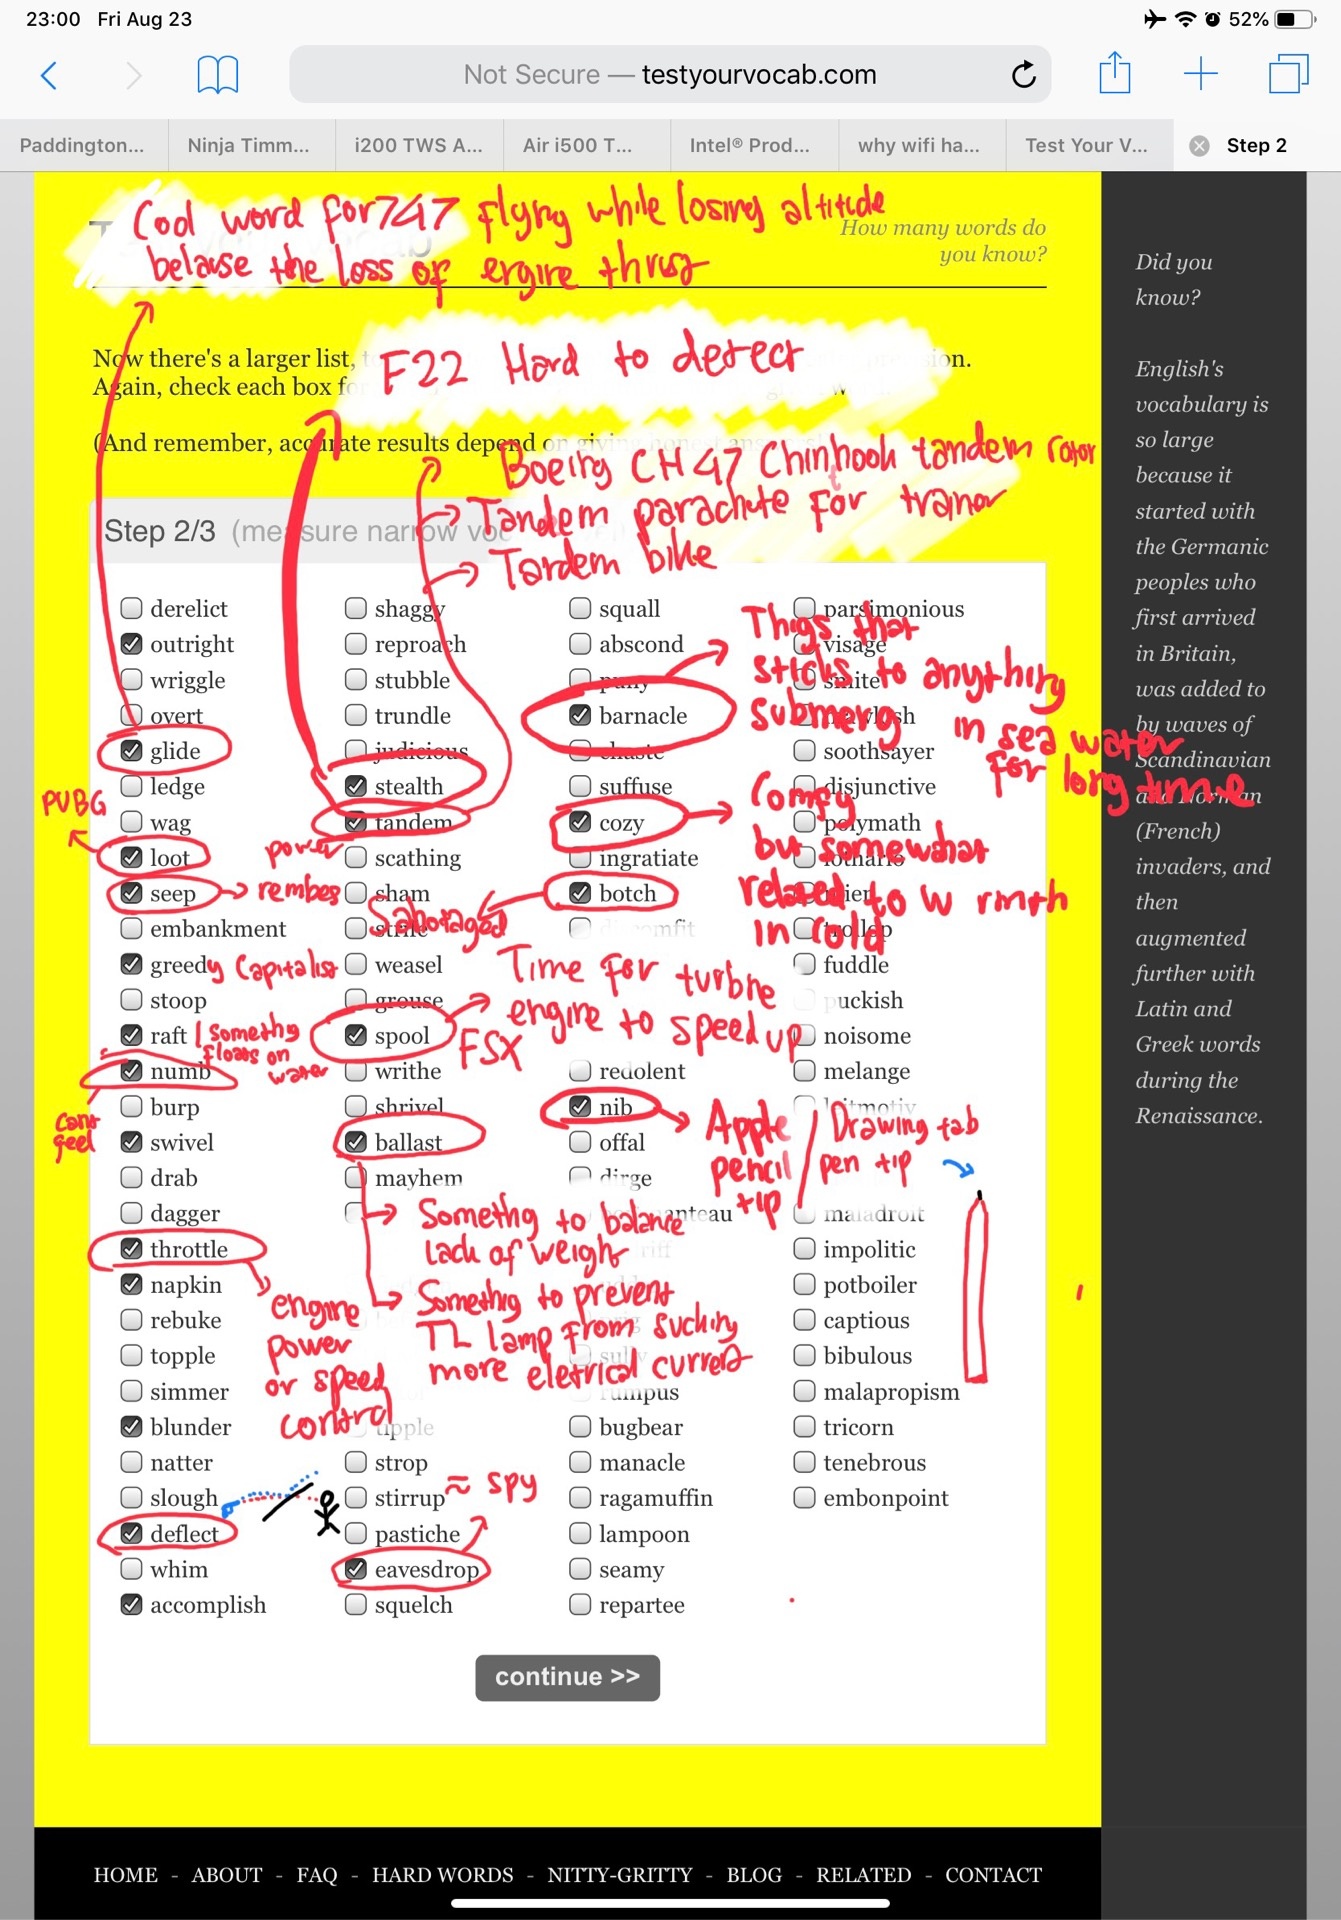 23:00 Fri Aug 23
52%
Not Secure — testyourvocab.com
Paddington...
Ninja Timm...
i200 TWS A...
Air i500 T...
Intel® Prod...
why wifi ha...
Test Your V...
Step 2
Cool word for 747 flying while losing altitude
because the loss of engine thrust
How many words do
you know?
Now there's a larger list,
Again, check each box for
F22 Hard to detect
(And remember, accurate results depend on giving honest answers!
Boeing CH47 Chinhook tandem rotor
Tandem parachute for trainor
Tandem bike
Step 2/3 (measure narrow voc
derelict
outright
wriggle
overt
glide
ledge
wag
loot
seep
embankment
greedy
stoop
raft
numb
burp
swivel
drab
dagger
throttle
napkin
rebuke
topple
simmer
blunder
natter
slough
deflect
whim
accomplish
PUBG
power
rembes
Capitalist
Somethg
floats on
water
Cant
feel
engine
power
or speed
control
shaggy
reproach
stubble
trundle
judicious
stealth
tandem
scathing
sham
strife
weasel
grouse
spool
writhe
shrivel
ballast
mayhem
tipple
strop
stirrup
pastiche
eavesdrop
squelch
Sabotaged
Time for turbine
engine to speed up
FSX
Somethg to balance
lack of weight
Somethig to prevent
TL lamp from sucking
more eletrical current
≈ spy
squall
abscond
puny
barnacle
chaste
suffuse
cozy
ingratiate
botch
redolent
nib
offal
dirge
sully
rumpus
bugbear
manacle
ragamuffin
lampoon
seamy
repartee
Thigs that
sticks to anything
submerg in sea water
for long time
Comfy
but somewhat
related to w rmth
in cold
Apple
pencil
tip
/
Drawing tab
pen tip
parsimonious
visage
smite
soothsayer
disjunctive
polymath
lothario
trollop
fuddle
puckish
noisome
melange
leitmotiv
maladroit
impolitic
potboiler
captious
bibulous
malapropism
tricorn
tenebrous
embonpoint
continue >>
Did you
know?
English's
vocabulary is
so large
because it
started with
the Germanic
peoples who
first arrived
in Britain,
was added to
by waves of
Scandinavian
and Norman
(French)
invaders, and
then
augmented
further with
Latin and
Greek words
during the
Renaissance.
HOME - ABOUT - FAQ - HARD WORDS - NITTY-GRITTY - BLOG - RELATED - CONTACT